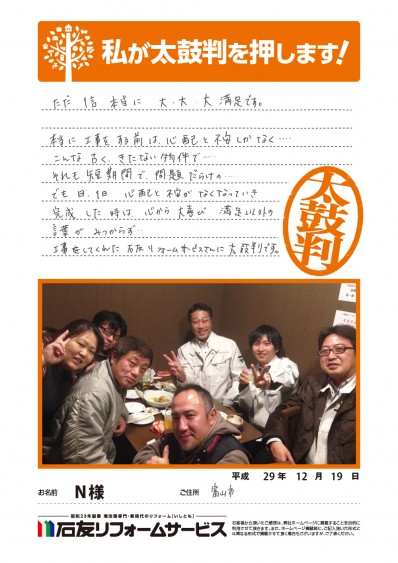 私が太鼓判を押します!
ただ 1言 本当に 大・大・大 満足です。
本当に 工事をする前は、心配と不安しかなく……
こんな 古く、きたない物件で……
それも 短期間で、問題だらけの…
でも 日、1日 心配と不安がなくなっていき
完成した時は、心から大喜び 満足以外の
言葉が みつからず…
工事をしてくれた 石友リフォームサービスさんに 太鼓判です。
太鼓判
平成 29年 12月 19日
お名前 N様 ご住所 富山市
昭和23年創業 増改築専門・新時代のリフォーム[いしとも]
石友リフォームサービス
お客様から頂いたご感想は、弊社ホームページに掲載することを目的に
利用させて頂きます。また、ホームページ掲載時に、ご記入頂いた形式と
は異なる形式で掲載させて頂く場合もございますが、ご了承ください。